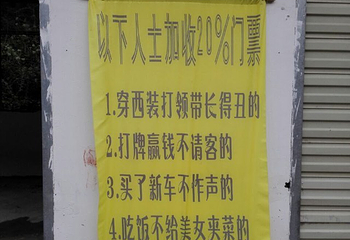 以下人士加收20%门票
1.穿西装打领带长得丑的
2.打牌赢钱不请客的
3.买了新车不作声的
4.吃饭不给美女夹菜的